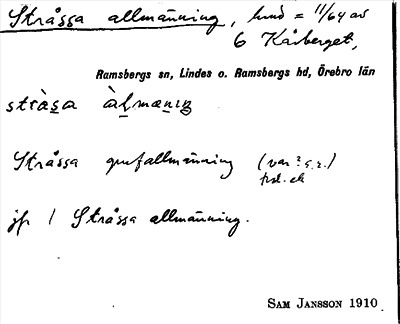 Stråssa allmänning, hmd = 11/64 av
6 Kårberget,
Ramsbergs sn, Lindes o. Ramsbergs hd, Örebro län
stràsa àlmæniŋ
Stråssa gruvallmänning (var? s.r.)
jfr 1 Stråssa allmänning.
SAM JANSSON 1910